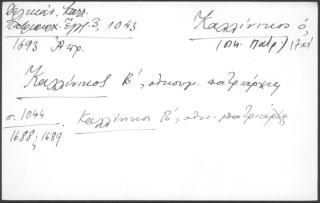 Δελικάν. Καλλ.
Πατριαρχ. Ἔγγρ. 3, 1043
1693 Ἀπρ.
Καλλίνικος ὁ,
(οἰκ. Πατρ.)
Καλλίνικος Β′, οἰκουμ. πατριάρχης
σ. 1044
1688; 1689
Καλλίνικος Β′, οἰκ. πατριάρχης